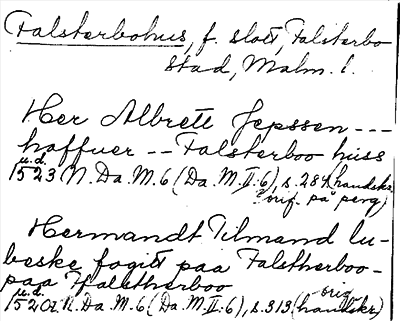 Falsterbohus, f. slott, Falsterbo
stad, Malm. l.
Her Albrett Jepssen ---
haffuer -- Falsterboo huss
u.d.
1523 N. Da. M. 6 (Da. M. II:6), s. 284 (handskr.
orig. på perg)
Hermandt Tilmand lu-
beske fogitt paa Falstherboo-
paa Falstherboo
u.d. orig.
1520t N. Da. M. 6 (Da. M. II:6), s. 313 (handskr)